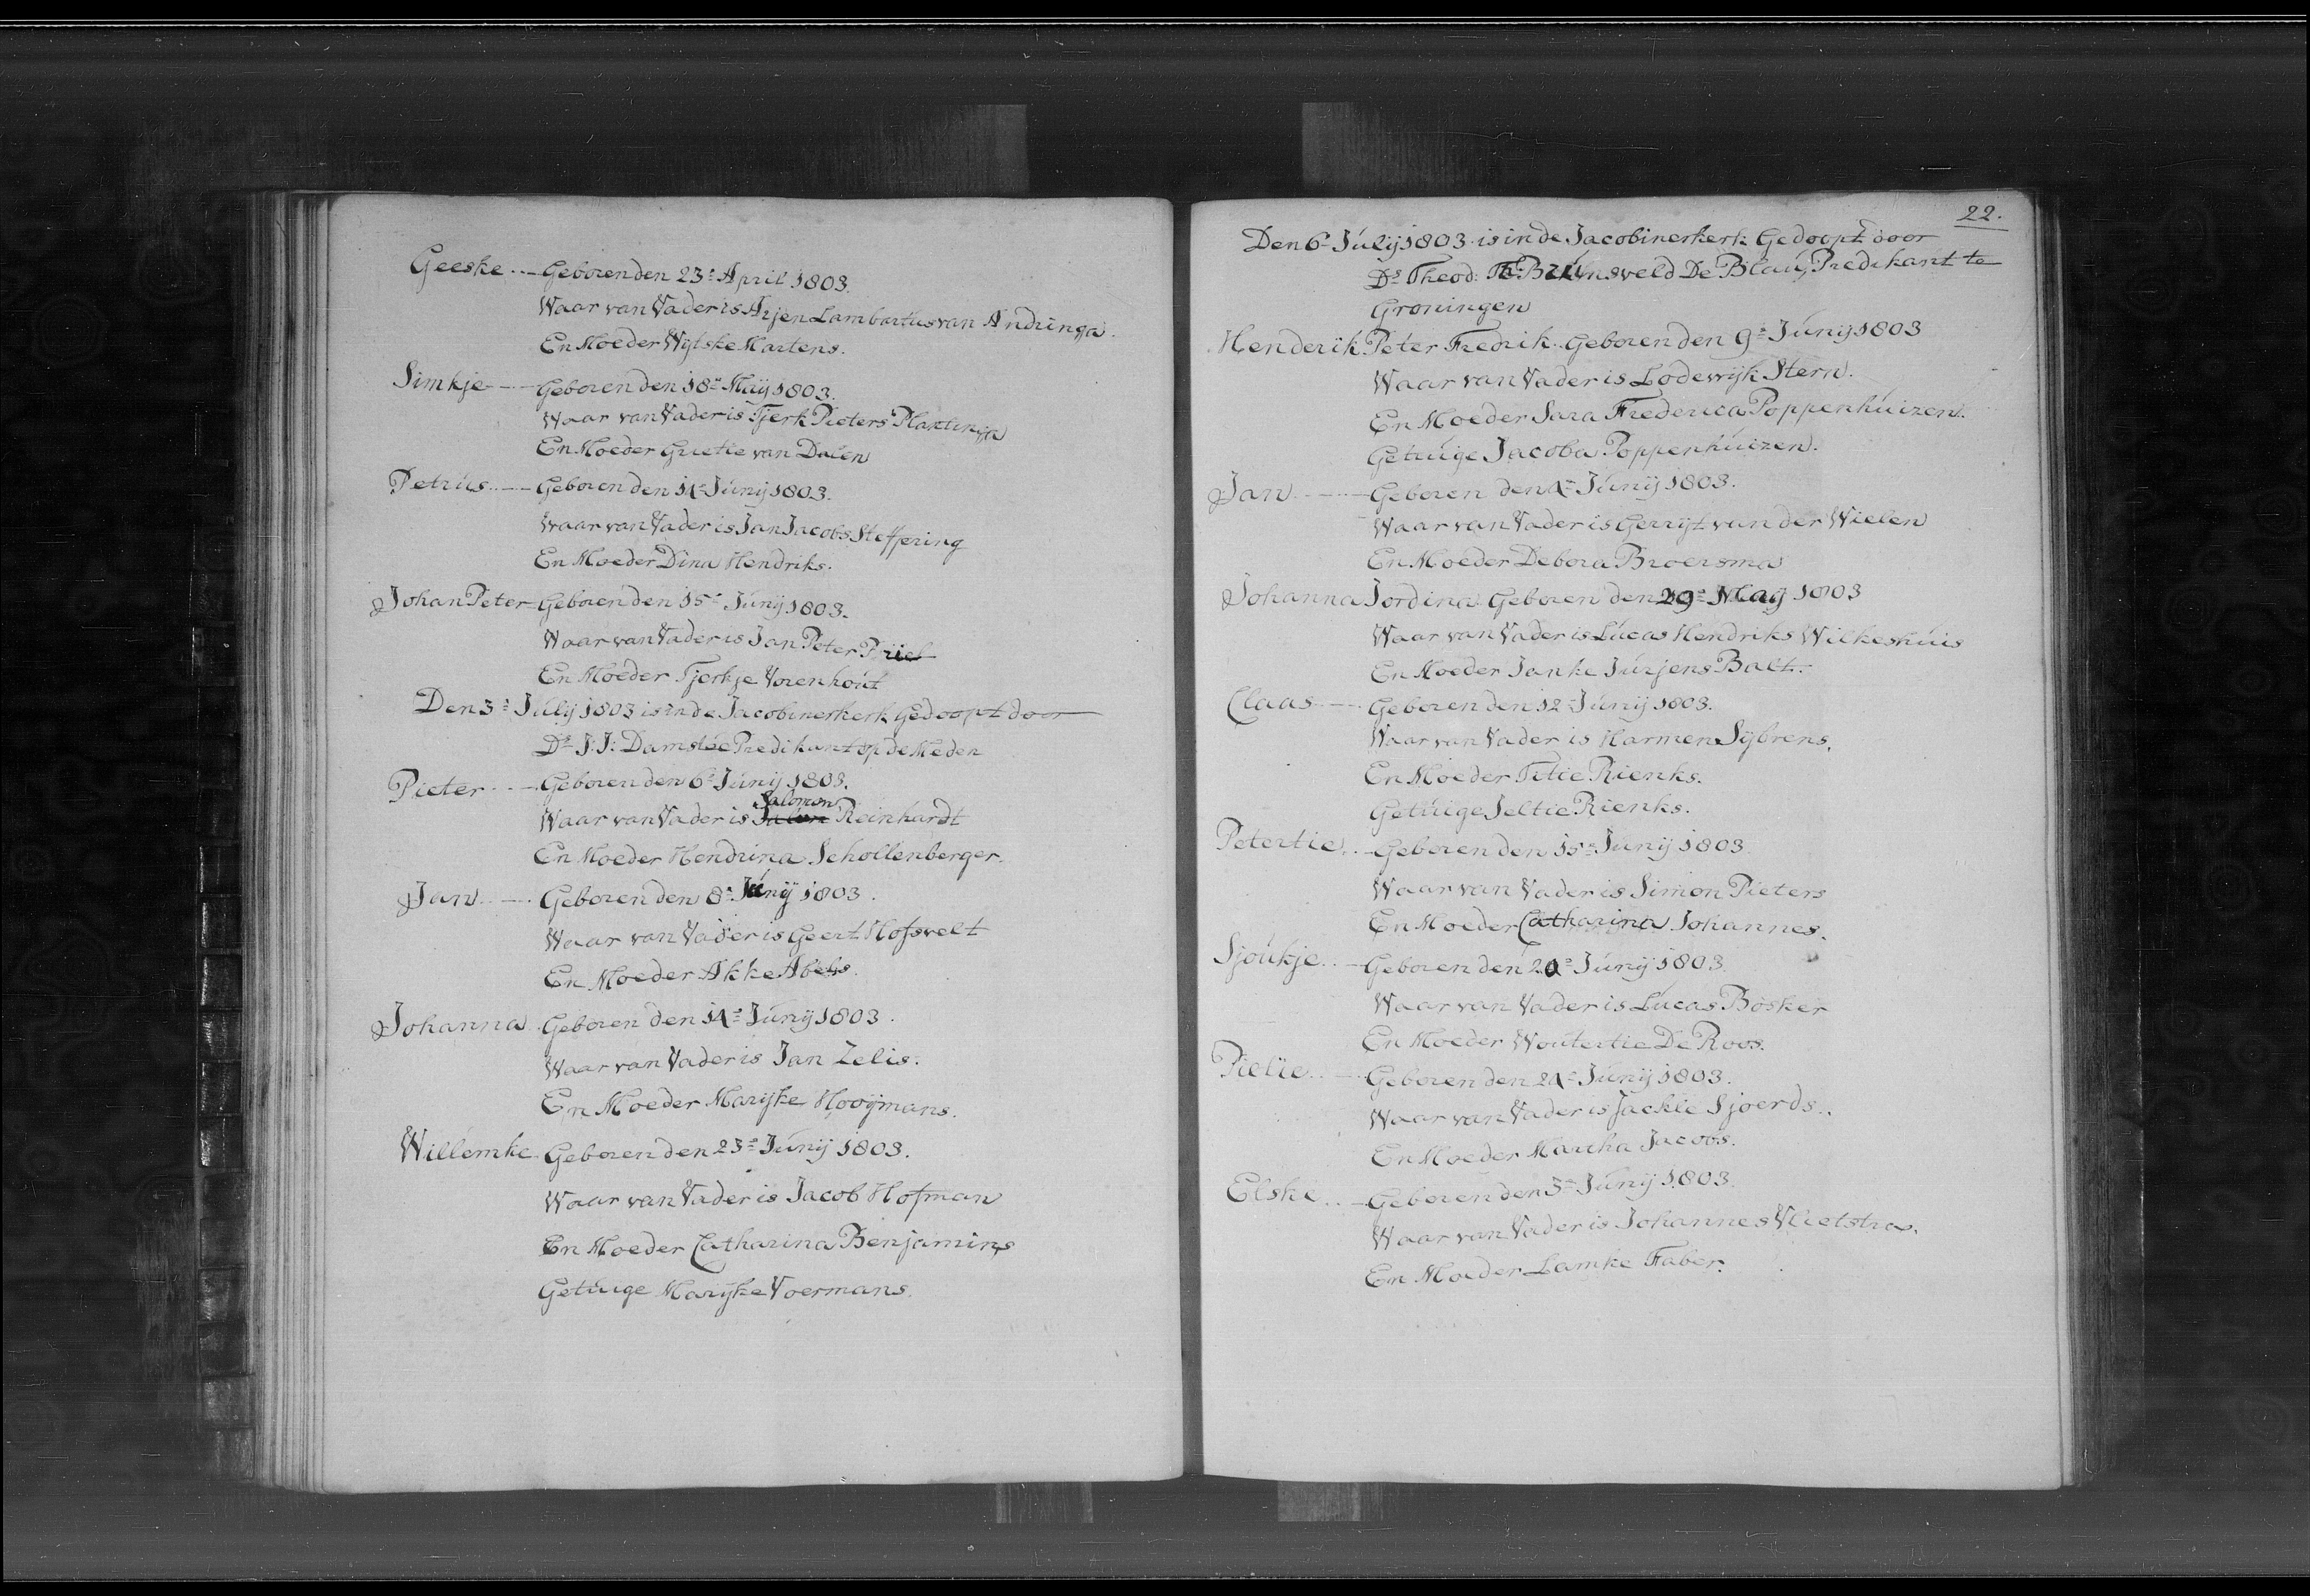 Geeske..— Geboren den 23e April 1803.
Waar van Vader is Arjen Lambartus van Andringa.
En Moeder Wytske Martens.
Simkje-..— Geboren den 18e Meij 1803.
Waar van Vader is Tjerk Pieters Plantinga
En Moeder Grietie van Dalen
Petrus..— Geboren den 14e Junij 1803.
Waar van Vader is Jan Jacobs Steffering
En Moeder Dina Hendriks.
Johan Peter- Geboren den 15e Junij 1803.
Waar van Vader is Jan Peter Priel
En Moeder Tjerkje Vorenhout
Den 3e Julij 1803 is in de Jacobinerkerk Gedoopt door
Ds J: J: Damstée Predikant op de Meden
Pieter..— Geboren den 6e Junij 1803.
Salomon
Waar van Vader is Reinhardt
En Moeder Hendrina Schollenberger.
Jan..— Geboren den 8e Junij 1803.
Waar van Vader is Geert Hofsvelt
En Moeder Akke Abels.
Johanna. Geboren den 14e Junij 1803.
Waar van Vader is Jan Zelis.
En Moeder Marijke Hooijmans.
Willemke. Geboren den 23e Junij 1803.
Waar van Vader is Jacob Hofman
En Moeder Catharina Benjamins
Getuige Marijke Voermans.
22.
Den 6e Julij 1803 is in de Jacobinerkerk Gedoopt door
Ds Theod: Th: Brunsveld De Blau, Predikant te
Groningen
Henderik Peter Fredrik. Geboren den 9e Junij 1803
Waar van Vader is Lodewijk Stern.
En Moeder Sara Frederica Poppenhuizen.
Getuige Jacoba Poppenhuizen.
Jan..— Geboren den 4e Junij 1803.
Waar van Vader is Gerrijt van der Wielen
En Moeder Debora Broersma
Johanna Jordina. Geboren den 29e May 1803
Waar van Vader is Lucas Hendriks Wilkeshuis
En Moeder Janke Jurjens Balt.
Claas..— Geboren den 12e Junij 1803.
Waar van Vader is Harmen Sijbrens.
En Moeder Titie Rienks.
Getuige Jeltie Rienks.
Petertie..— Geboren den 15e Junij 1803.
Waar van Vader is Simon Pieters
En Moeder Catharina Johannes.
Sjoukje..— Geboren den 20e Junij 1803.
Waar van Vader is Lucas Bosker
En Moeder Woutertie De Roos.
Pietie..— Geboren den 24e Junij 1803.
Waar van Vader is Jackle Sjoerds.
En Moeder Martha Jacobs.
Elske..— Geboren den 5e Junij 1803.
Waar van Vader is Johannes Vlietstra.
En Moeder Lamke Faber.